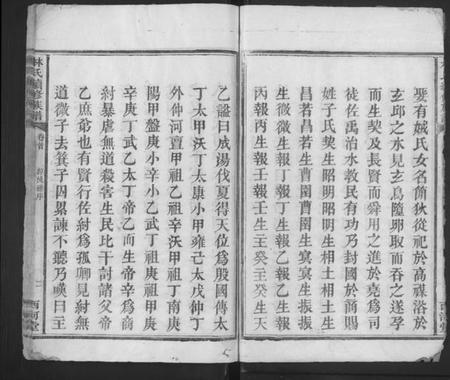 娶有娀氏女名簡狄從祀於高禖浴於
玄邱之水見玄鳥隨卵取而吞之遂孕
而生契及長賢而舜用之進於堯爲司
徒佐禹治水教民有功乃封國於商賜
姓子氏契生昭明昭明生相土相土生
昌若昌若生曹圉曹圉生冥冥生振振
生微微生報丁報丁生報乙報乙生報
丙報丙生報壬報壬生主壬主壬生主癸主癸生天
乙謚曰成湯伐夏得天位爲殷國傳太
丁太甲沃丁太康小甲雍己太戊仲丁
外仲河亶甲祖乙祖辛沃甲祖丁南庚
陽甲盤庚小辛小乙武丁祖庚祖甲
庚丁武乙太丁帝乙而生帝辛辛爲商
紂暴虐無道殺害生民比干討諸父帝
乙庶弟也有賢行佐紂爲孤卿見紂無
道微子去箕子囚累諫不聽乃嘆曰主
林氏續修族譜
卷首
二
西河堂